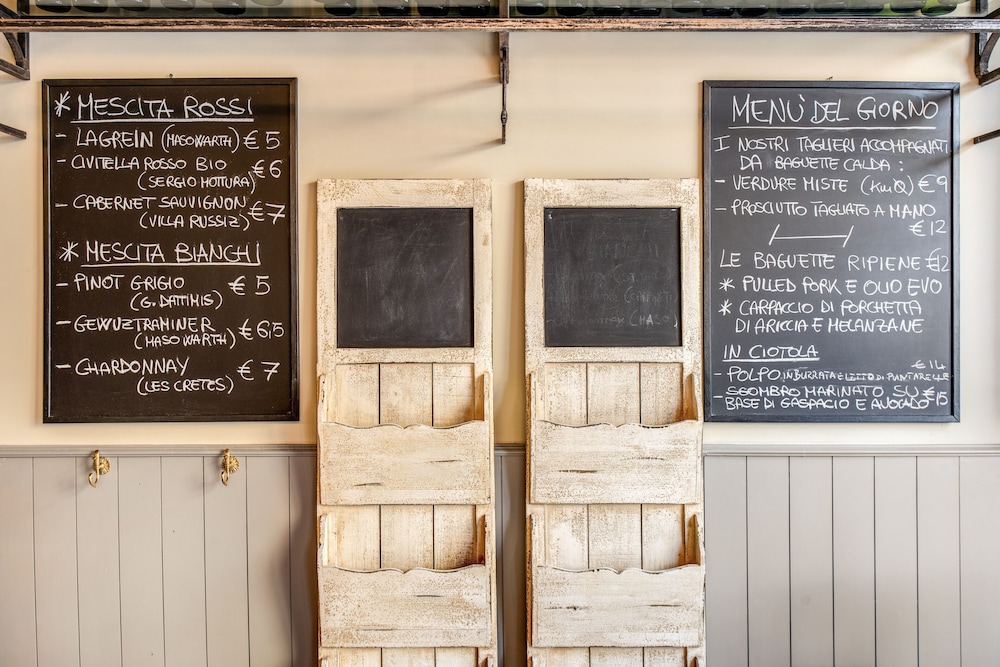 * MESCITA ROSSI
- LAGREIN (MASO WARTH) € 5
- CIVITELLA ROSSO BIO € 6
(SERGIO MOTTURA)
- CABERNET SAUVIGNON € 7
(VILLA RUSSIZ)
* MESCITA BIANCHI
- PINOT GRIGIO € 5
(G. DATTIMIS)
- GEWUZTRAMINER € 6,5
(MASO WARTH)
- CHARDONNAY € 7
(LES CRETES)
MENÙ DEL GIORNO
I NOSTRI TAGLIERI ACCOMPAGNATI
DA BAGUETTE CALDA :
- VERDURE MISTE (Km0) € 9
- PROSCIUTTO TAGLIATO A MANO
€ 12
LE BAGUETTE RIPIENE € 12
* PULLED PORK E OLIO EVO
* CARPACCIO DI PORCHETTA
DI ARICCIA E MELANZANE
IN CIOTOLA
€ 14
- POLPO IN BURRATA E LETTO DI PUNTARELLE
- SGOMBRO MARINATO SU € 15
BASE DI GASPACIO E AVOCADO